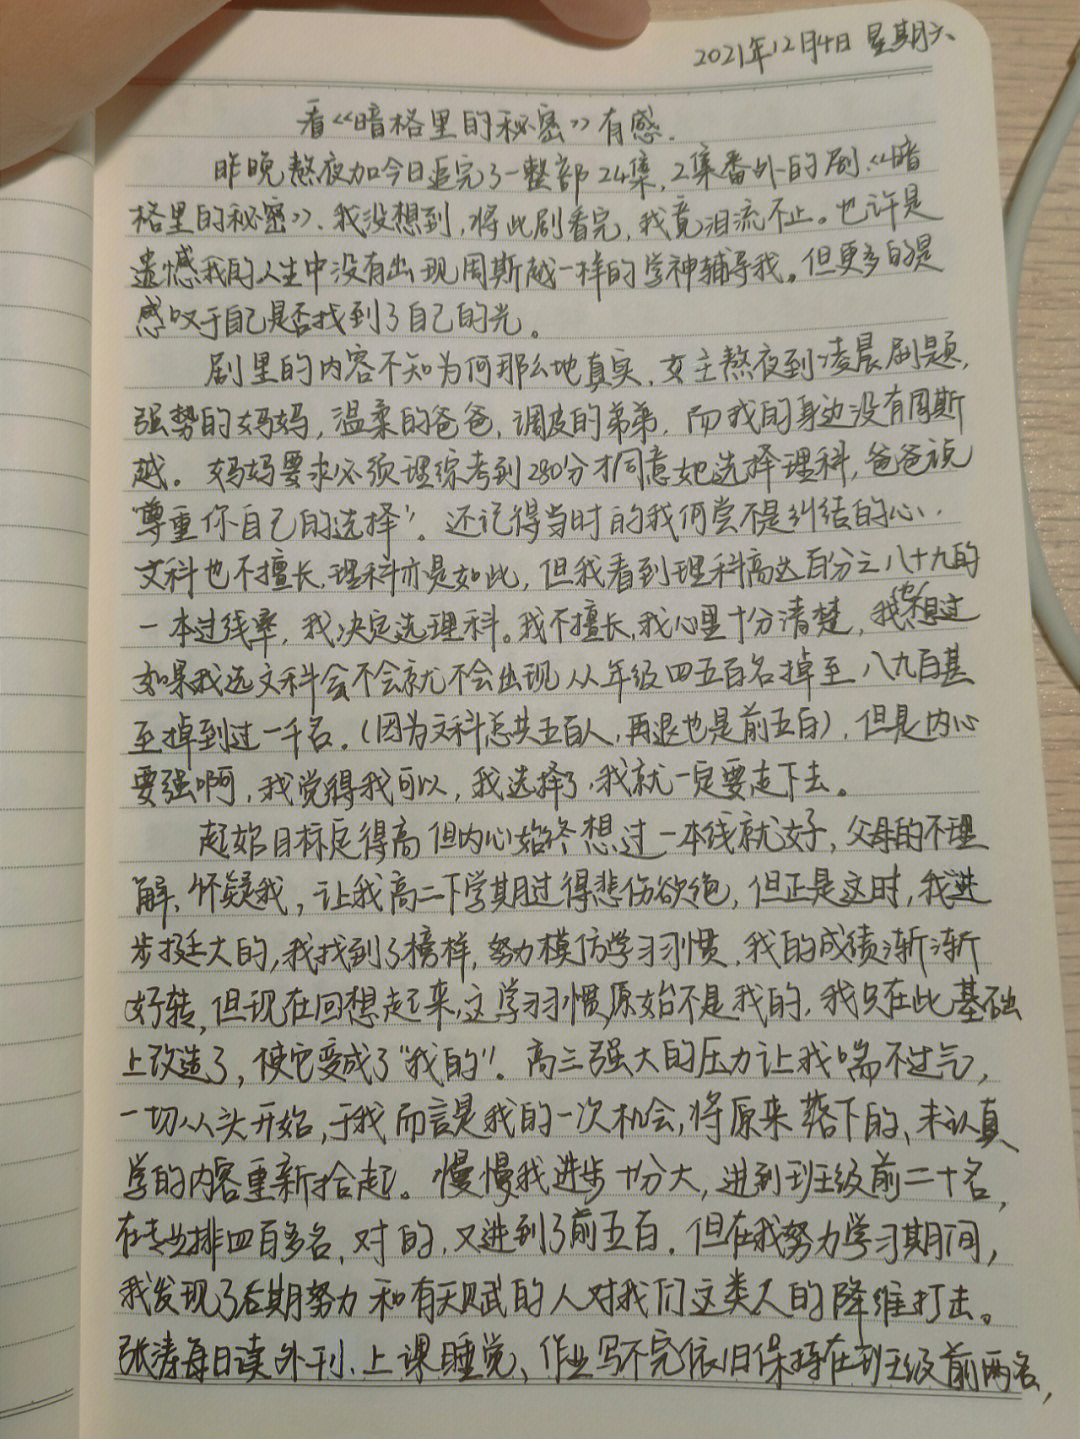 2021年12月4日 星期六
看《暗格里的秘密》有感.
昨晚熬夜加今日追完了一整部24集,2集番外的剧《暗
格里的秘密》、我没想到,将此剧看完,我竟泪流不止。也许是
遗憾我的人生中没有出现周斯越一样的学神辅导我。但更多的是
感叹于自己是否找到了自己的光。
剧里的内容不知为何那么地真实,女主熬夜到凌晨刷题,
强势的妈妈,温柔的爸爸,调皮的弟弟,而我的身边没有周斯
越。妈妈要求必须理综考到280分才同意她选择理科,爸爸说
"尊重你自己的选择"。还记得当时的我何尝不是纠结的心、
文科也不擅长,理科亦是如此,但我看到理科高达百分之八十九的
一本过线率,我决定选理科。我不擅长,我心里十分清楚,我也想过
如果我选文科会不会就不会出现从年级四五百名掉至八九百甚
至掉到过一千名.(因为文科总共五百人,再退也是前五百),但是内心
要强啊,我觉得我可以,我选择了,我就一定要走下去。
起始目标定得高但内心始终想过一本线就好,父母的不理
解、怀疑我,让我高二下学期过得悲伤欲绝,但正是这时,我进
步挺大的,我找到了榜样,努力模仿学习习惯,我的成绩渐渐
好转,但现在回想起来,这学习习惯原始不是我的,我只在此基础
上改造了,使它变成了"我的"。高三强大的压力让我喘不过气,
一切从头开始,于我而言是我的一次机会,将原来落下的、未认真
学的内容重新拾起。慢慢我进步十分大,进到班级前二十名,
在专业排四百多名,对的,又进到了前五百.但在我努力学习期间,
我发现了后期努力和有天赋的人对我们这类人的降维打击。
张涛每日读外刊、上课睡觉、作业写不完依旧保持在班级前两名,